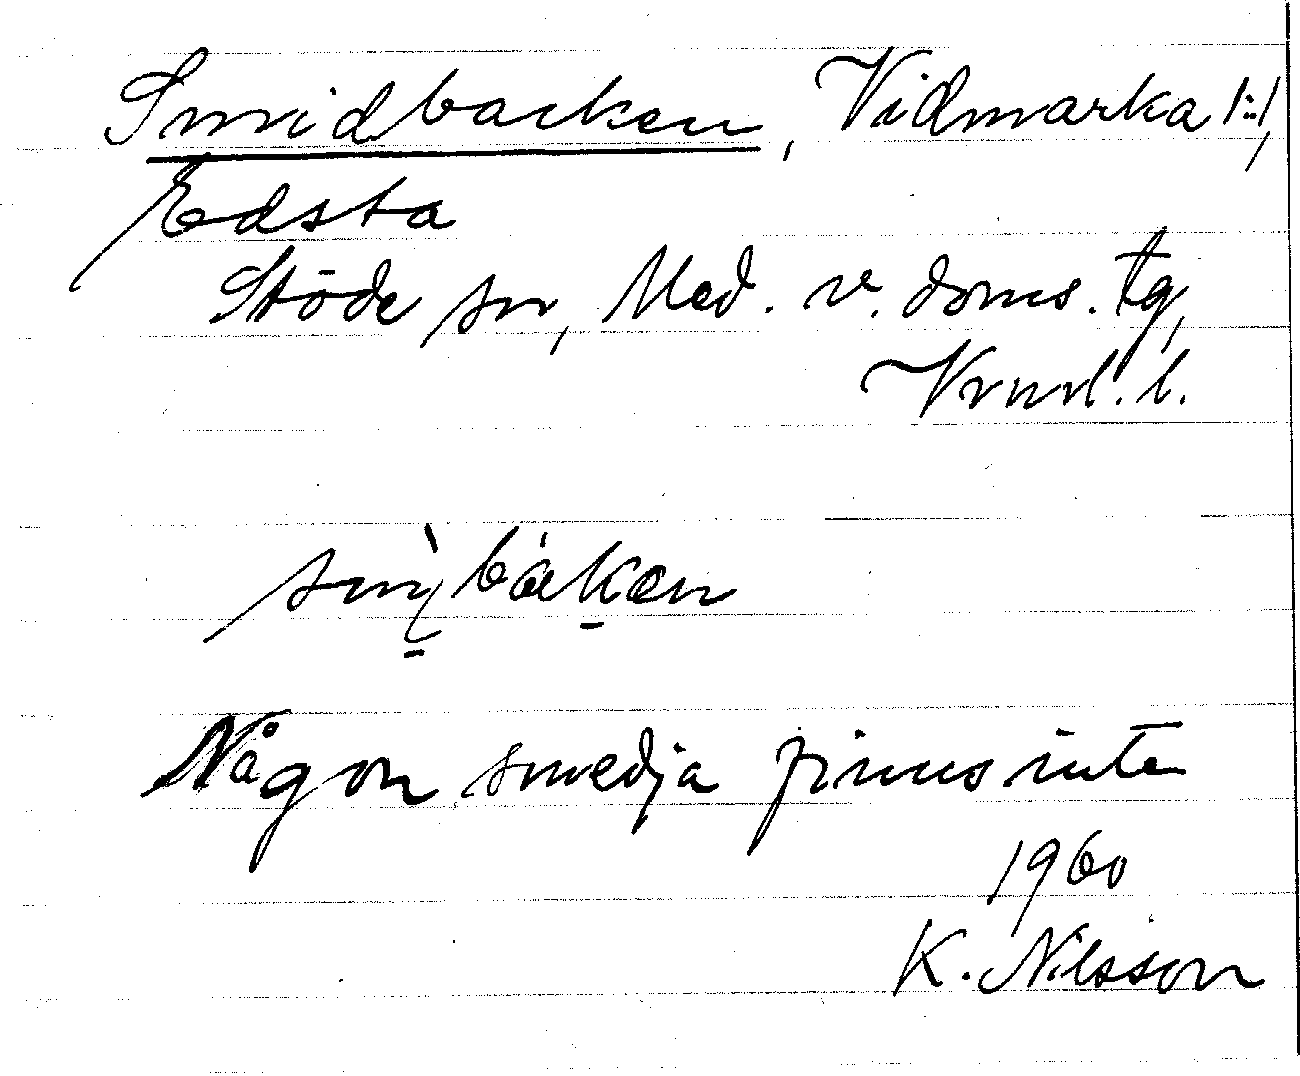 Smidbacken, Vidmarka 1:1,
Edsta
Stöde sn, Med. v. doms. tg,
Vrnrl. l.
Någon smedja finns inte
1960
K. Nilsson